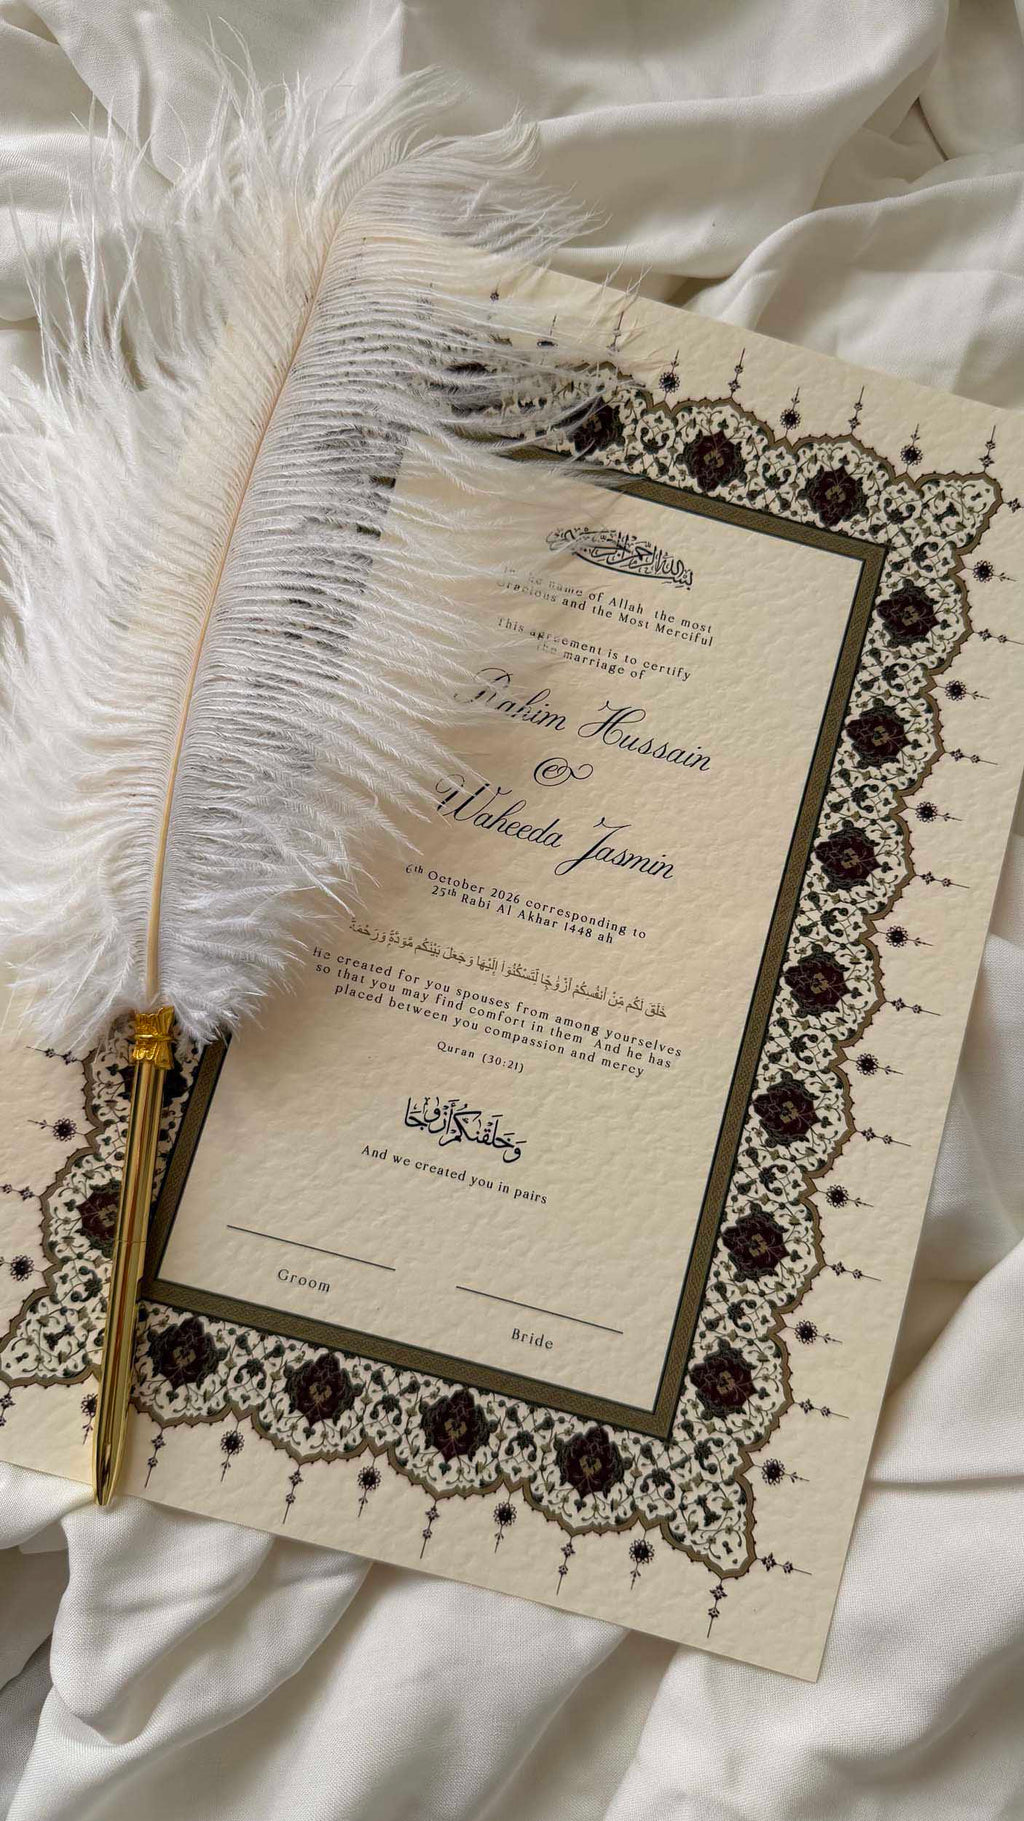 بسم الله الرحمن الرحيم
In the name of Allah the most
Gracious and the Most Merciful
This agreement is to certify
the marriage of
Rahim Hussain
&
Waheeda Jasmin
6th October 2026 corresponding to
25th Rabi Al Akhar 1448 ah
خَلَقَ لَكُم مِّنْ أَنفُسِكُمْ أَزْوَٰجًا لِّتَسْكُنُوٓا۟ إِلَيْهَا وَجَعَلَ بَيْنَكُم مَّوَدَّةً وَرَحْمَةً
He created for you spouses from among yourselves
so that you may find comfort in them And he has
placed between you compassion and mercy
Quran (30:21)
وَخَلَقْنَكُمْ أَزْوَٰجًا
And we created you in pairs
Groom
Bride